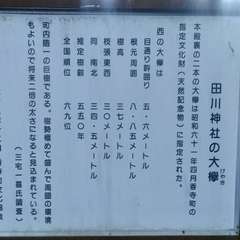 田川神社の大欅
けやき
本殿裏の二本の大欅は昭和六十一年四月香寺町の
指定文化財(天然記念物)に指定された。
西の大欅は
目通り幹囲り 五・六メートル
根元周囲 八メートル
樹高 三七メートル
枝張東西 三〇メートル
同 南北 三四・五メートル
推定樹齢 五五〇年
全国順位 六九位
町内随一の巨樹である。樹勢極めて盛んで周囲の環境
もよいので将来二倍の太さになると見込まれている。
(三宅一基氏調査)